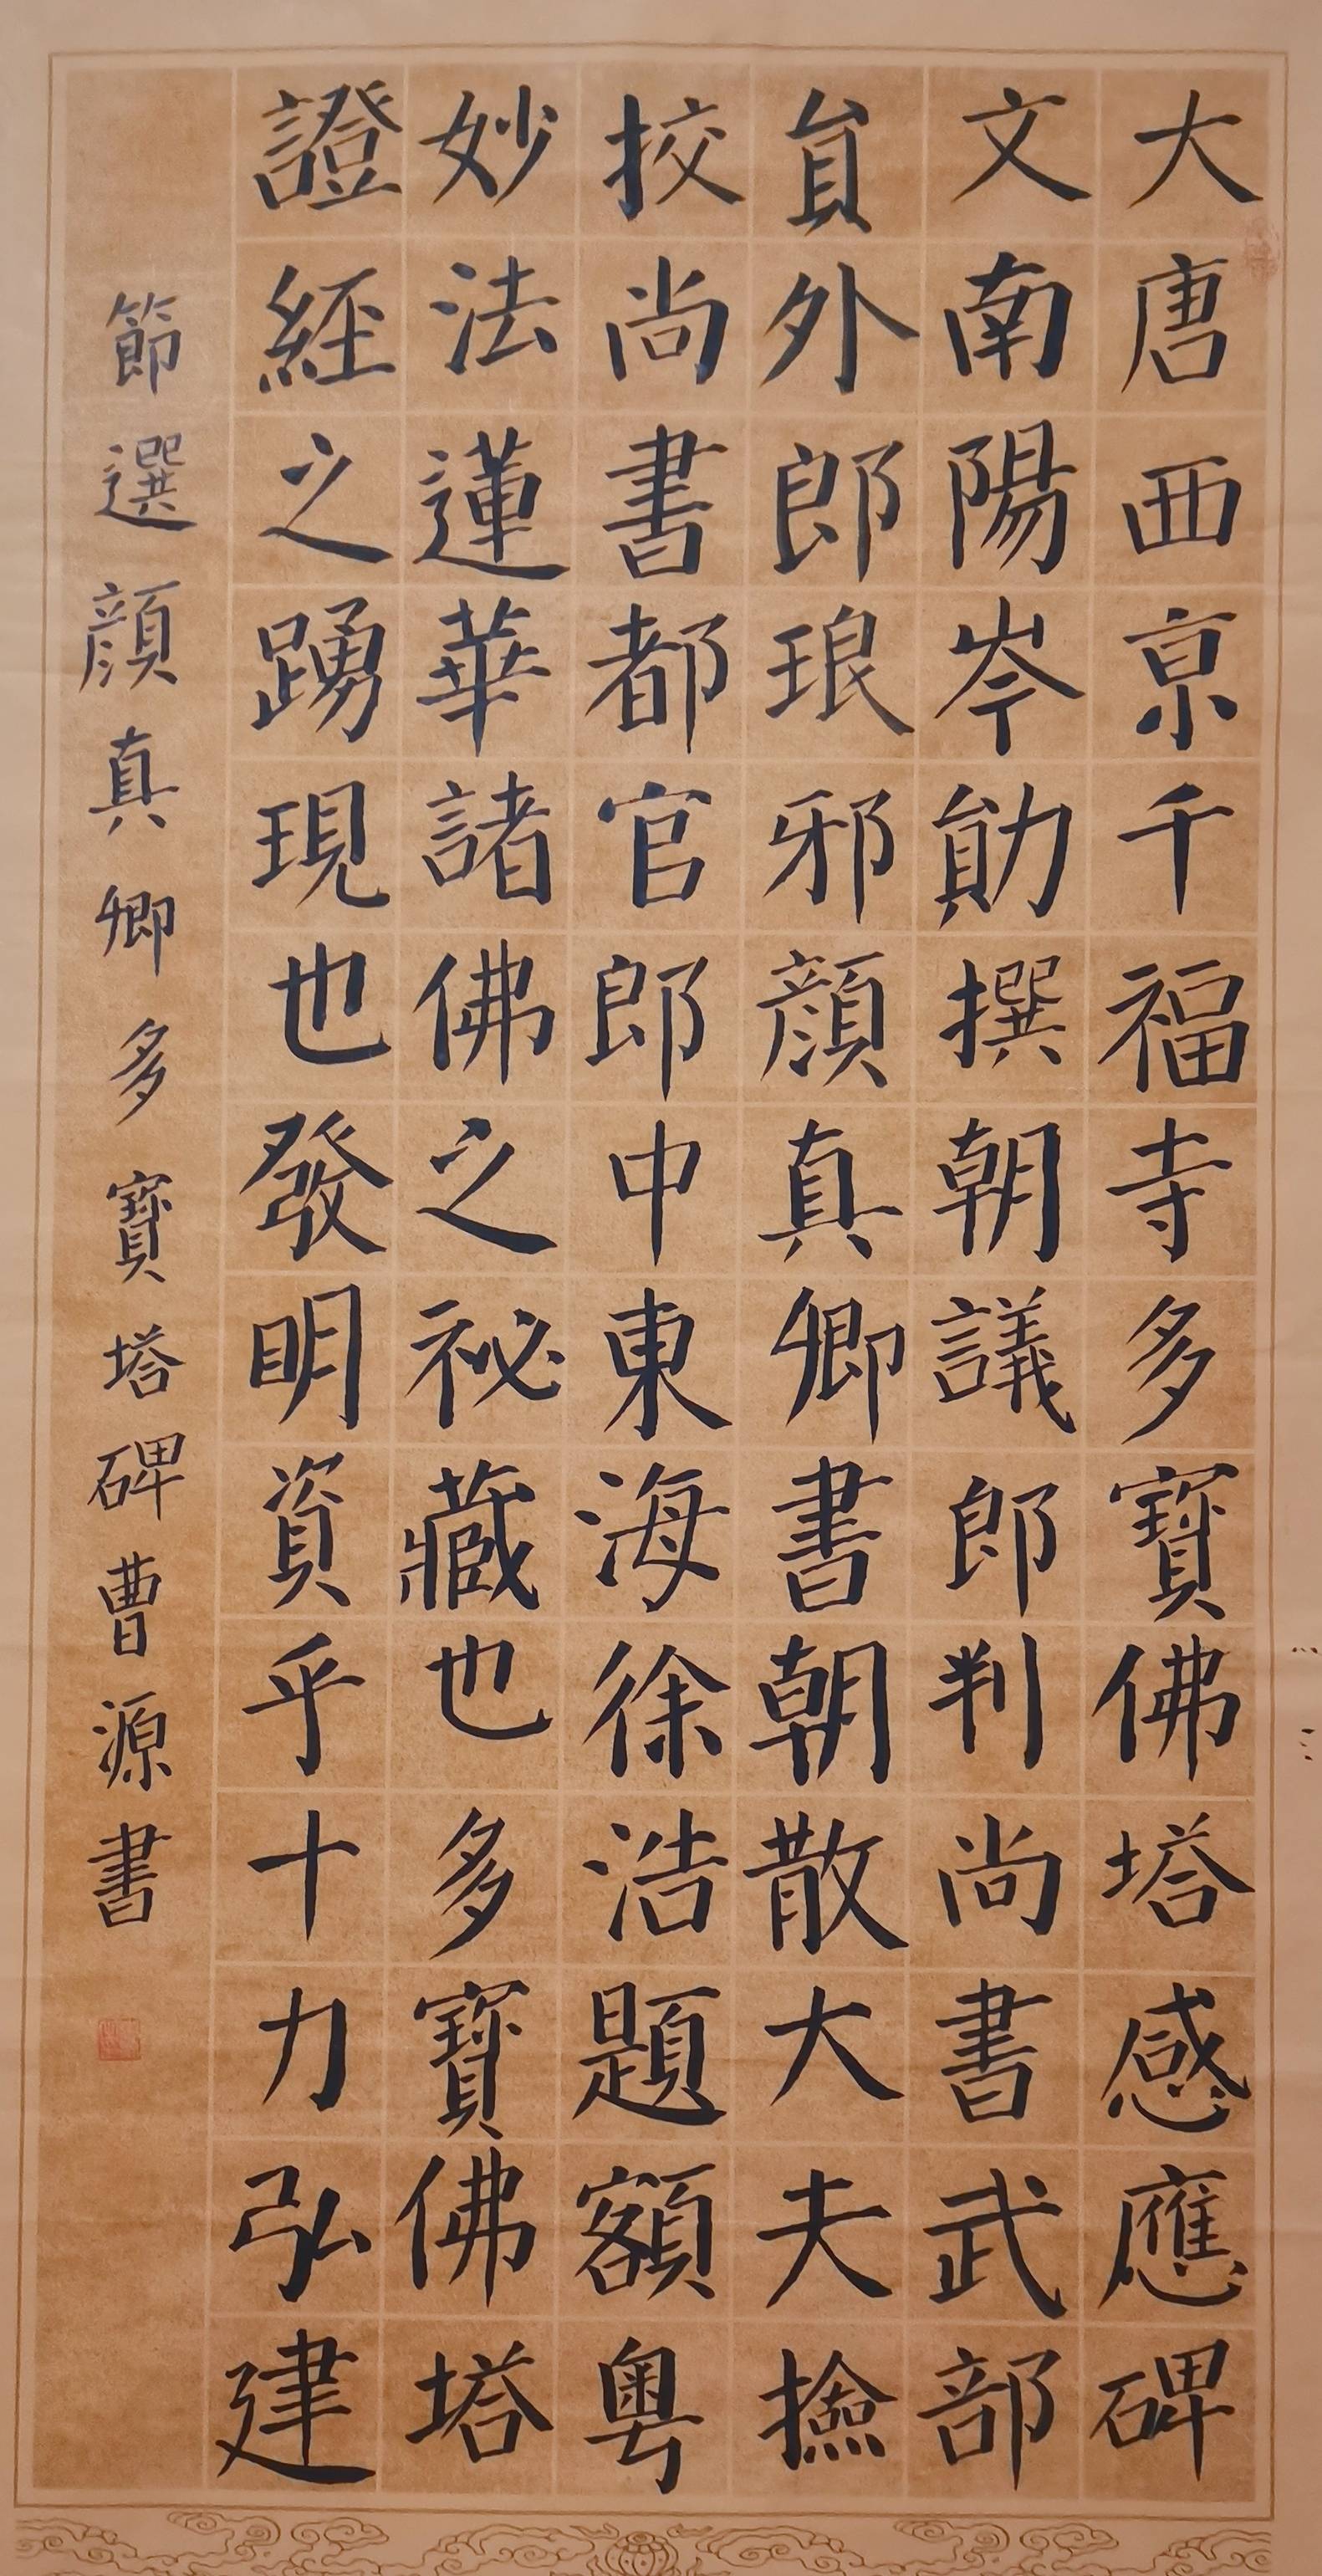 大唐西京千福寺多寶佛塔感應碑
文南陽岑勛撰朝議郎判尚書武部
貟外郎琅邪顏真卿書朝散大夫撿
挍尚書都官郎中東海徐浩題額粵
妙法蓮華諸佛之祕藏也多寶佛塔
證經之踴現也發明資乎十力弘建
節選顏真卿多寶塔碑曹源書